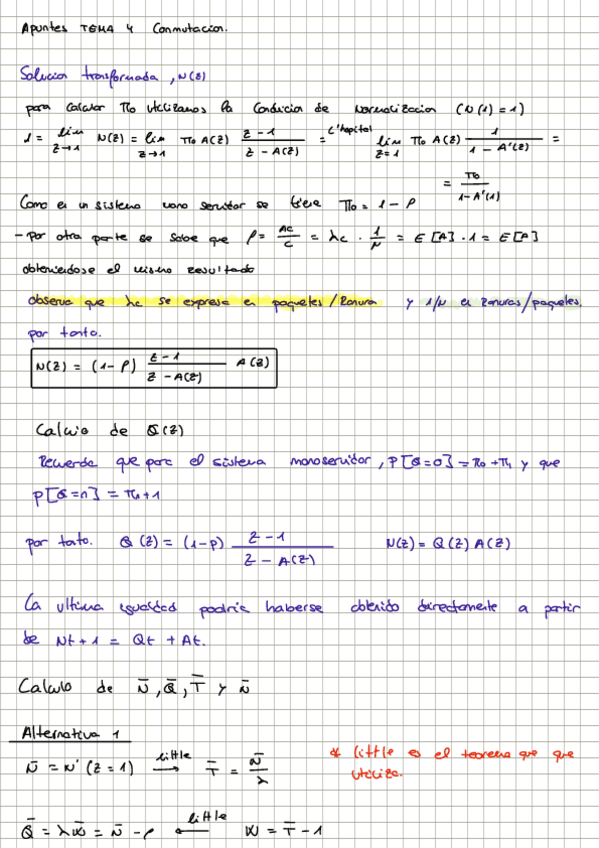 Apuntes TEMA 4 Conmutacion.
Solucion transformada, N(z)
para calcular π0 utilizamos la Condición de Normalizacion (N(1) = 1)
1 = lim z→1 N(z) = lim z→1 π0 A(z) z-1 / z - A(z) = L'hopital lim z=1 π0 A(z) 1 / 1 - A'(z) =
= π0 / 1-A'(1)
Como es un sistema mono servidor se tiene π0 = 1 - ρ
- Por otra parte se sabe que ρ = Ac / C = λc · 1/μ = E[A] · 1 = E[A]
obteniendose el mismo resultado
observa que λc se expresa en paquetes/Ranura y 1/μ en ranuras/paquetes.
por tanto.
N(z) = (1-ρ) z-1 / z - A(z) A(z)
Calculo de Q(z)
Recuerda que para el sistema monoservidor, P[Q=0] = π0 + π1 y que
P[Q=n] = πn+1
por tanto. Q(z) = (1-ρ) z-1 / z - A(z) N(z) = Q(z) A(z)
La ultima igualdad podria haberse obtenido directamente a partir
de Nt+1 = Qt + At.
Calculo de N̄, Q̄, T̄ y N̄
Alternativa 1
N̄ = N'(z=1) little → T̄ = N̄/λ
* little es el teorema que que
utiliza.
Q̄ = λW̄ = N̄ - ρ ← little W = T̄ - 1